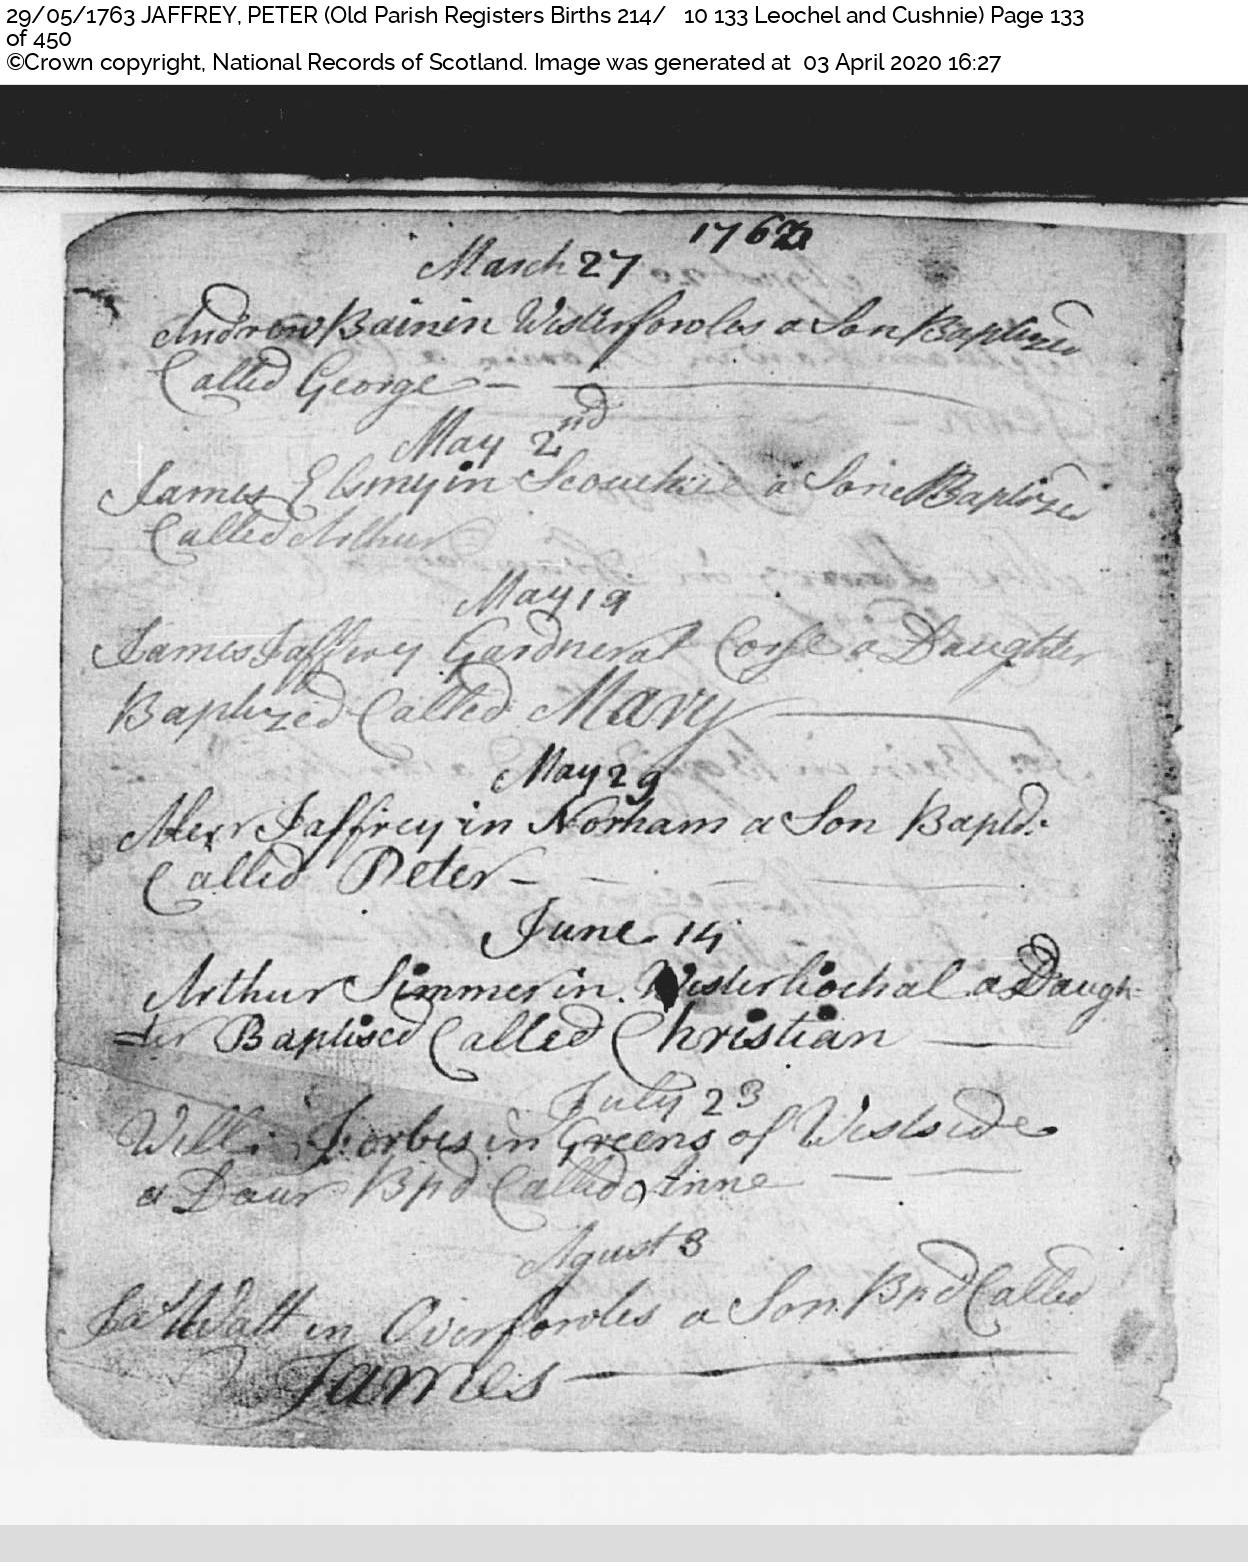 29/05/1763 JAFFREY, PETER (Old Parish Registers Births 214/ 10 133 Leochel and Cushnie) Page 133
of 450
©Crown copyright, National Records of Scotland. Image was generated at 03 April 2020 16:27
176
March 27
Andrew Bain in Westerfowles a Son Baptized
Called George
May 2nd
James Elsmy in a Sone Baptized
Called Arthur
May 19
James Jaffrey Gardner at Corse a Daughter
Baptized Called Mary
May 29
Alexr Jaffrey in Norham a Son Baptd:
Called Peter
June 14
Arthur Simmer in Westerliochal a Daugh-
=ter Baptised Called Christian
July 23
Will: Forbes in Greens of Westside
a Daur Bpd Called Anne
Agust 3
Ja: Watt in Overfowles a Son Bpd Called
James